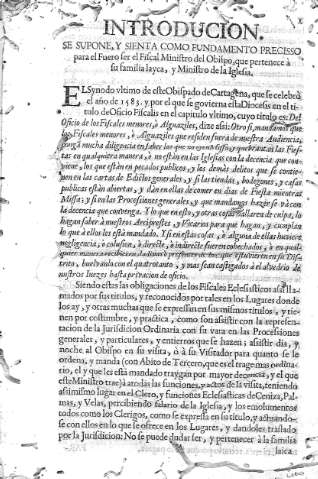 INTRODUCION.
SE SUPONE, Y SIENTA COMO FUNDAMENTO PRECISSO
para el Fuero ser el Fiscal Ministro del Obispo, que pertenece à
su familia layca, y Ministro de la Iglesia.
EL Synodo vltimo de este Obispado de Cartagena, que se celebrò
el año de 1583. y por el que se govierna esta Diocesis en el ti-
tulo de Oficio Fiscalis en el capitulo vltimo, cuyo titulo es: Del
Oficio de los Fiscales menores, ò Alguaziles, dize assi: Otro si, mandamos que
los Fiscales menores, ò Alguaziles que residen fuera de nuestra Audiencia,
mucha diligencia en saber los que no las Fies-
tas en qualquiera manera, ò no estèn en las Iglesias con la decencia que con-
viene, los que estàn en pecados publicos, y los demàs delitos que se contie-
nen en las cartas de Edictos generales, y si las tiendas, bodegones, y casas
publicas estàn abiertas, y dàn en ellas de comer en dias de Fiesta mientras
Missa; y si en las Processiones generales, y que mandamos hazer se và con
la decencia que convenga. Y lo que en esto, y otras cosas hallaren de culpa, lo
hagan saber à nuestros Arciprestes, y Vicarios para que hagan, y cumplan
lo que à ellos les està mandado. Y si en estas cosas, ò alguna de ellas huviere
negligencia, ò colusion, ò directè, ò indirectè fueren cohechados, ò en qual-
quier manera recibieren
con el quatrotanto, y mas sean castigados à el alvedrio de
nuestros Iuezes hasta privacion de oficio.
Siendo estas las obligaciones de los Fiscales Eclesiasticos assi lla-
mados por sus titulos, y reconocidos por tales en los Lugares donde
los ay, y otras muchas que se expressan en sus mismos titulos, y tie-
nen por costumbre, y practica, como son assistir con la represen-
tacion de la Jurisdicion Ordinaria con su vara en las Processiones
generales, y particulares, y entierros que se hazen; assistir dia, y
noche al Obispo en su visita, ò à su Visitador para quanto se le
ordena, y manda (con Abito de Tercero, que es el trage mas ordina-
rio, el y que les està mandado traygan por mayor decencia, y el que
este Ministro trae) à todas las funciones, y actos de la visita, teniendo
assimismo lugar en el Clero, y funciones Eclesiasticas de Ceniza, Pal-
mas, y Velas, percibiendo salario de la Iglesia, y los emolumentos
todos como los Clerigos, como se expressa en su titulo, y
se con ellos en lo que se ofrece en los Lugares, y dandoles traslado
por la Jurisdicion: No se puede dudar ser, y pertenecer à la familia
laica